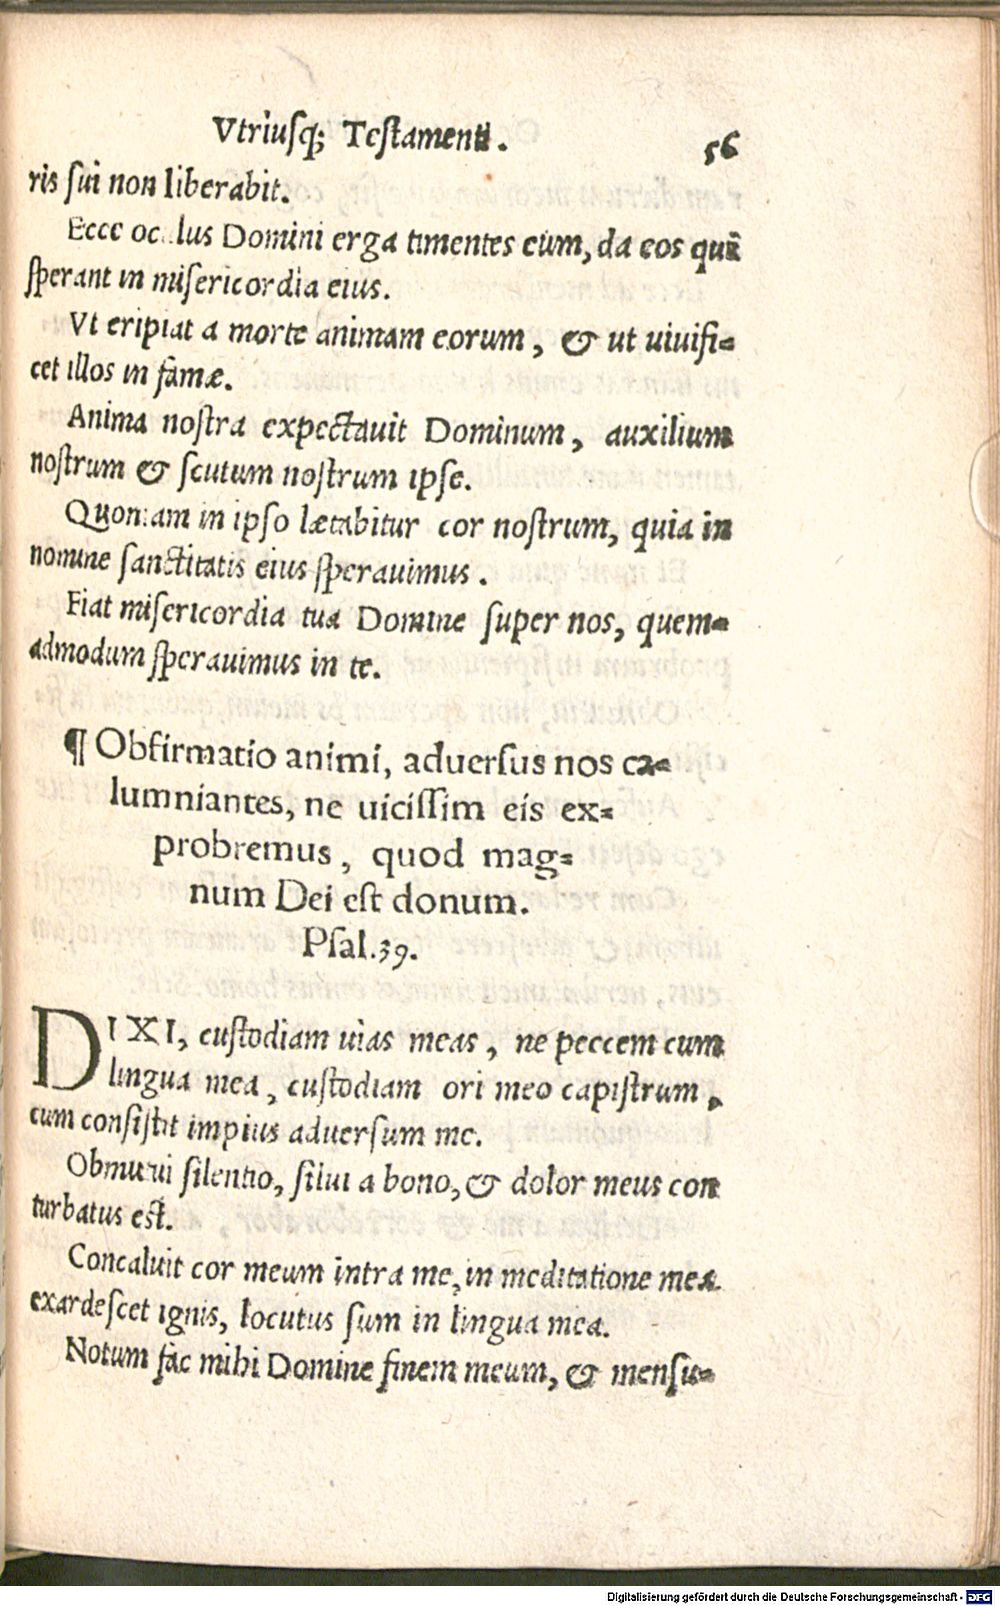 Vtriusq; Testamenti. 56
ris sui non liberabit.
Ecce oculus Domini erga timentes eum, da eos qui
sperant in misericordia eius.
Vt eripiat a morte animam eorum, & ut uiuifi=
cet illos in famæ.
Anima nostra expectauit Dominum, auxilium
nostrum & scutum nostrum ipse.
Quoniam in ipso lætabitur cor nostrum, quia in
nomine sanctitatis eius sperauimus.
Fiat misericordia tua Domine super nos, quem=
admodum sperauimus in te.
¶ Obfirmatio animi, aduersus nos ca=
lumniantes, ne uicissim eis ex=
probremus, quod mag=
num Dei est donum.
Psal.39.
DIXI, custodiam uias meas, ne peccem cum
lingua mea, custodiam ori meo capistrum,
cum consistit impius aduersum me.
Obmutui silentio, silui a bono, & dolor meus con
turbatus est.
Concaluit cor meum intra me, in meditatione mea
exardescet ignis, locutus sum in lingua mea.
Notum fac mihi Domine finem meum, & mensu=
Digitalisierung gefördert durch die Deutsche Forschungsgemeinschaft - DFG